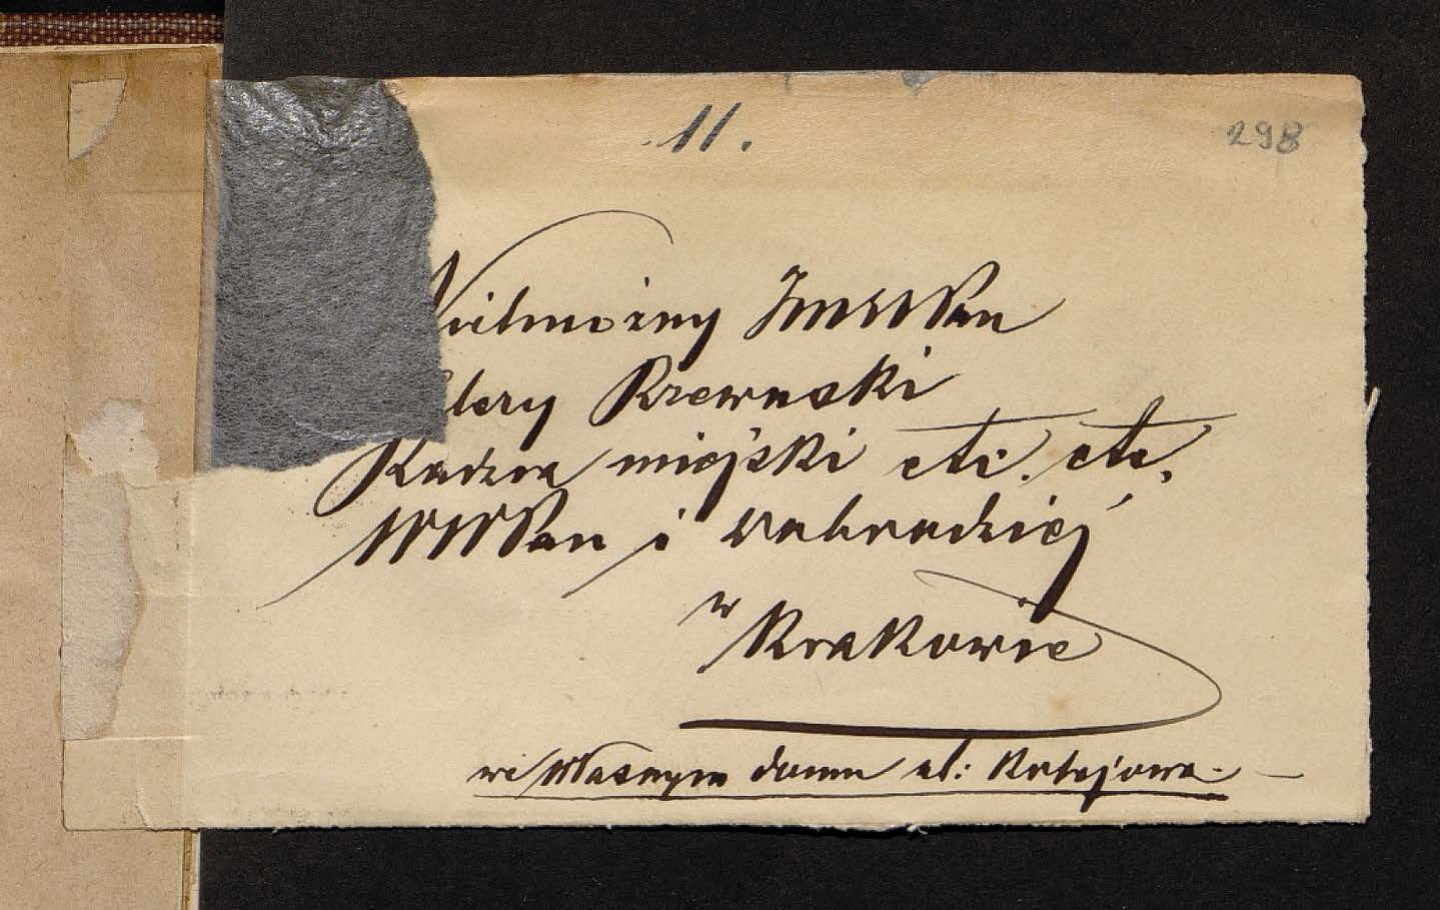 11.
298
Wielmożny JMWWPan
lery Rzewuski
Radzca miejski etc. etc.
WWPan i Dobrodziej
w Krakowie
we własnym domu ul: Kolejowa.